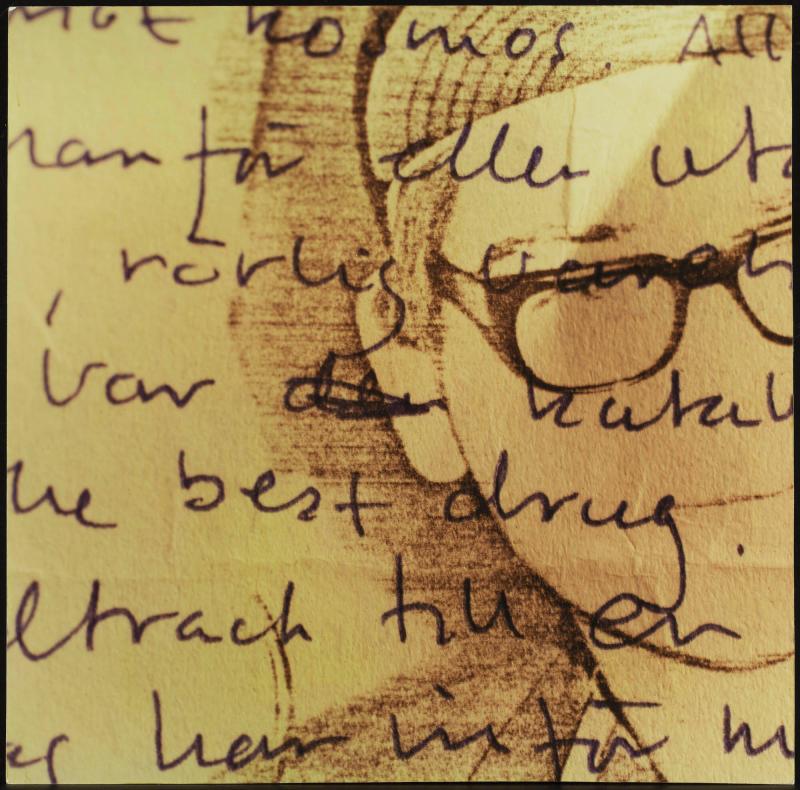 mot kosmos. All
ranför eller uta
, rörlig varelt
var den katal
he best drug.
eltrach till en
eg har inför m